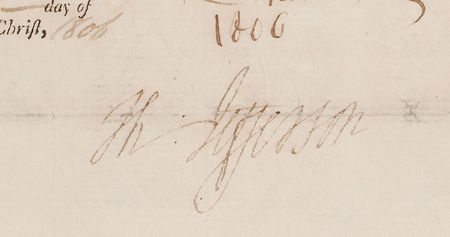 day of
Chriſt, 1806
1806
Th: Jefferson